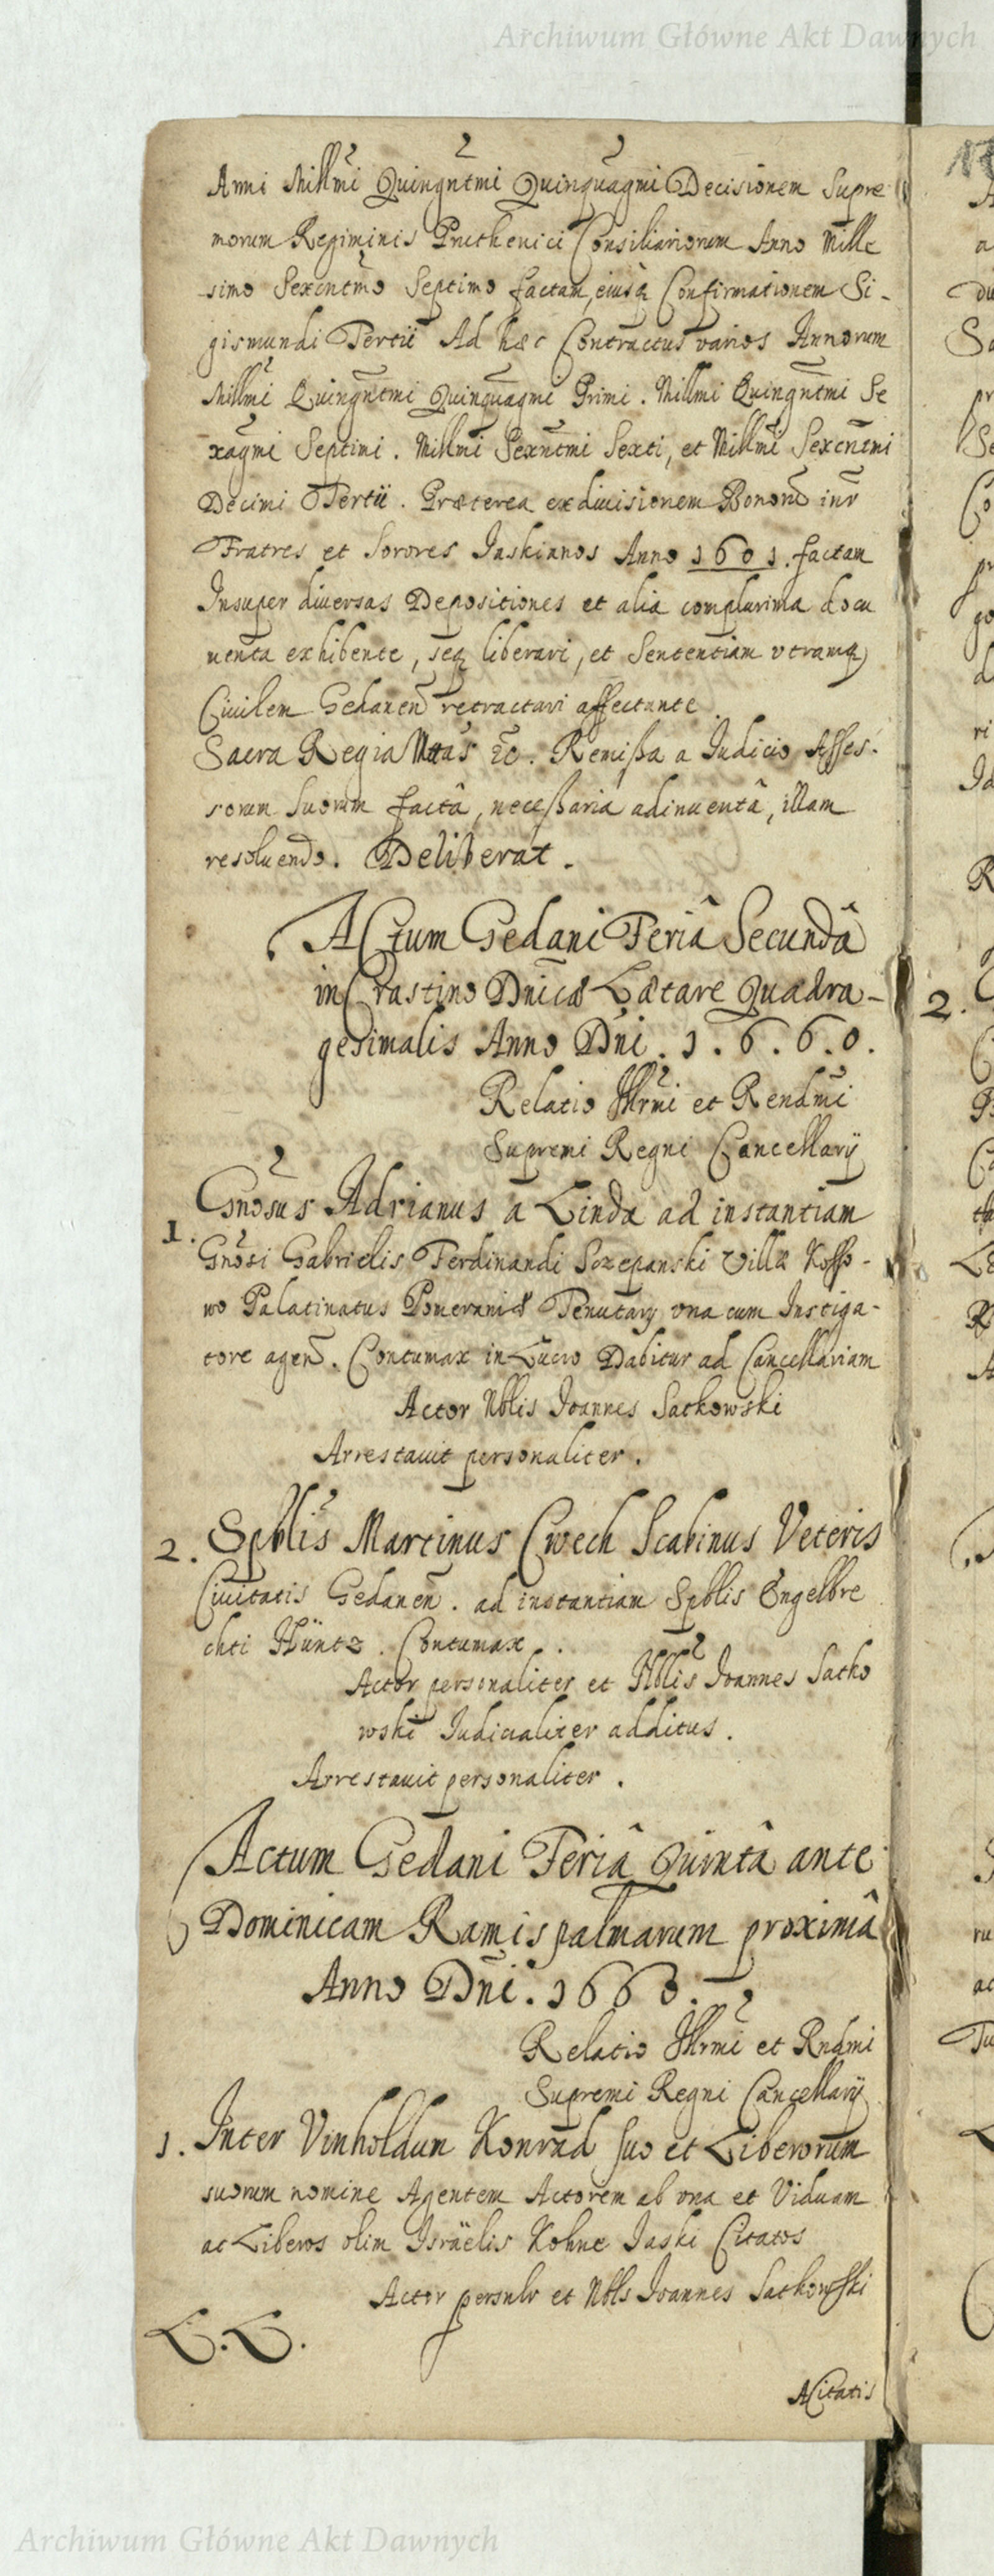 Archiwum Główne Akt Dawnych
Anni Millmi Quingntmi Quinquagmi Decisionem Supre
morum Regiminis Pruthenici Consiliariorum Anno Mille
simo Sexcntmo Septimo factam, eiusq Confirmationem Si-
gismundi Tertii Ad hæc Contractus varios Annorum
Millmi Quingntmi Quinquagmi Primi. Millmi Quingntmi Se
xagmi Septimi. Millmi Sexntmi Sexti, et Millmi Sexcntmi
Decimi Tertii. Præterea ex diuisionem Bonorū inr
Fratres et Sorores Jaskianos Anno 1601. factam
Insuper diuersas Depositiones et alia complurima docu
menta exhibente, seq liberari, et Sententiam vtramq
Ciuilem Gedanen retractari affectante
Sacra Regia Mttas &c. Remissa a Judicio Asses-
sorum Suorum factâ, necessaria adinuentâ, illam
resoluendo. Deliberat.
Actum Gedani Feriâ Secundâ
in Crastino Dnicæ Lætare Quadra-
gesimalis Anno Dni. 1.6.6.0.
Relatio Illrmi et Rendmi
Supremi Regni Cancellarij
1. Gnosus Adrianus a Linda ad instantiam
Gnosi Gabrielis Ferdinandi Sczepanski Villæ Kosso-
wo Palatinatus Pomeraniæ Tenutarij vna cum Instiga-
tore agen. Contumax in Lucro Dabitur ad Cancellariam
Actor Nblis Joannes Satkowski
Arrestauit personaliter.
2. Spblis Martinus Cwech Scabinus Veteris
Ciuitatis Gedanen. ad instantiam Spblis Engelbre
chti Hüntz. Contumax.
Actor personaliter et Nblis Joannes Satko
wski Judicialiter additus.
Arrestauit personaliter.
Actum Gedani Feriâ Quintâ ante
Dominicam Ramispalmarum proximâ
Anno Dni. 1660.
Relatio Illrmi et Rndmi
Supremi Regni Cancellarij
1. Inter Vinholdum Konrad suo et Liberorum
suorum nomine Agentem Actorem ab vna et Viduam
ac Liberos olim Israëlis Kohne Jaski Citatos
Actor persnlr et Nbls Joannes Satkowski
L.L.
A Citatis
2.
Archiwum Główne Akt Dawnych